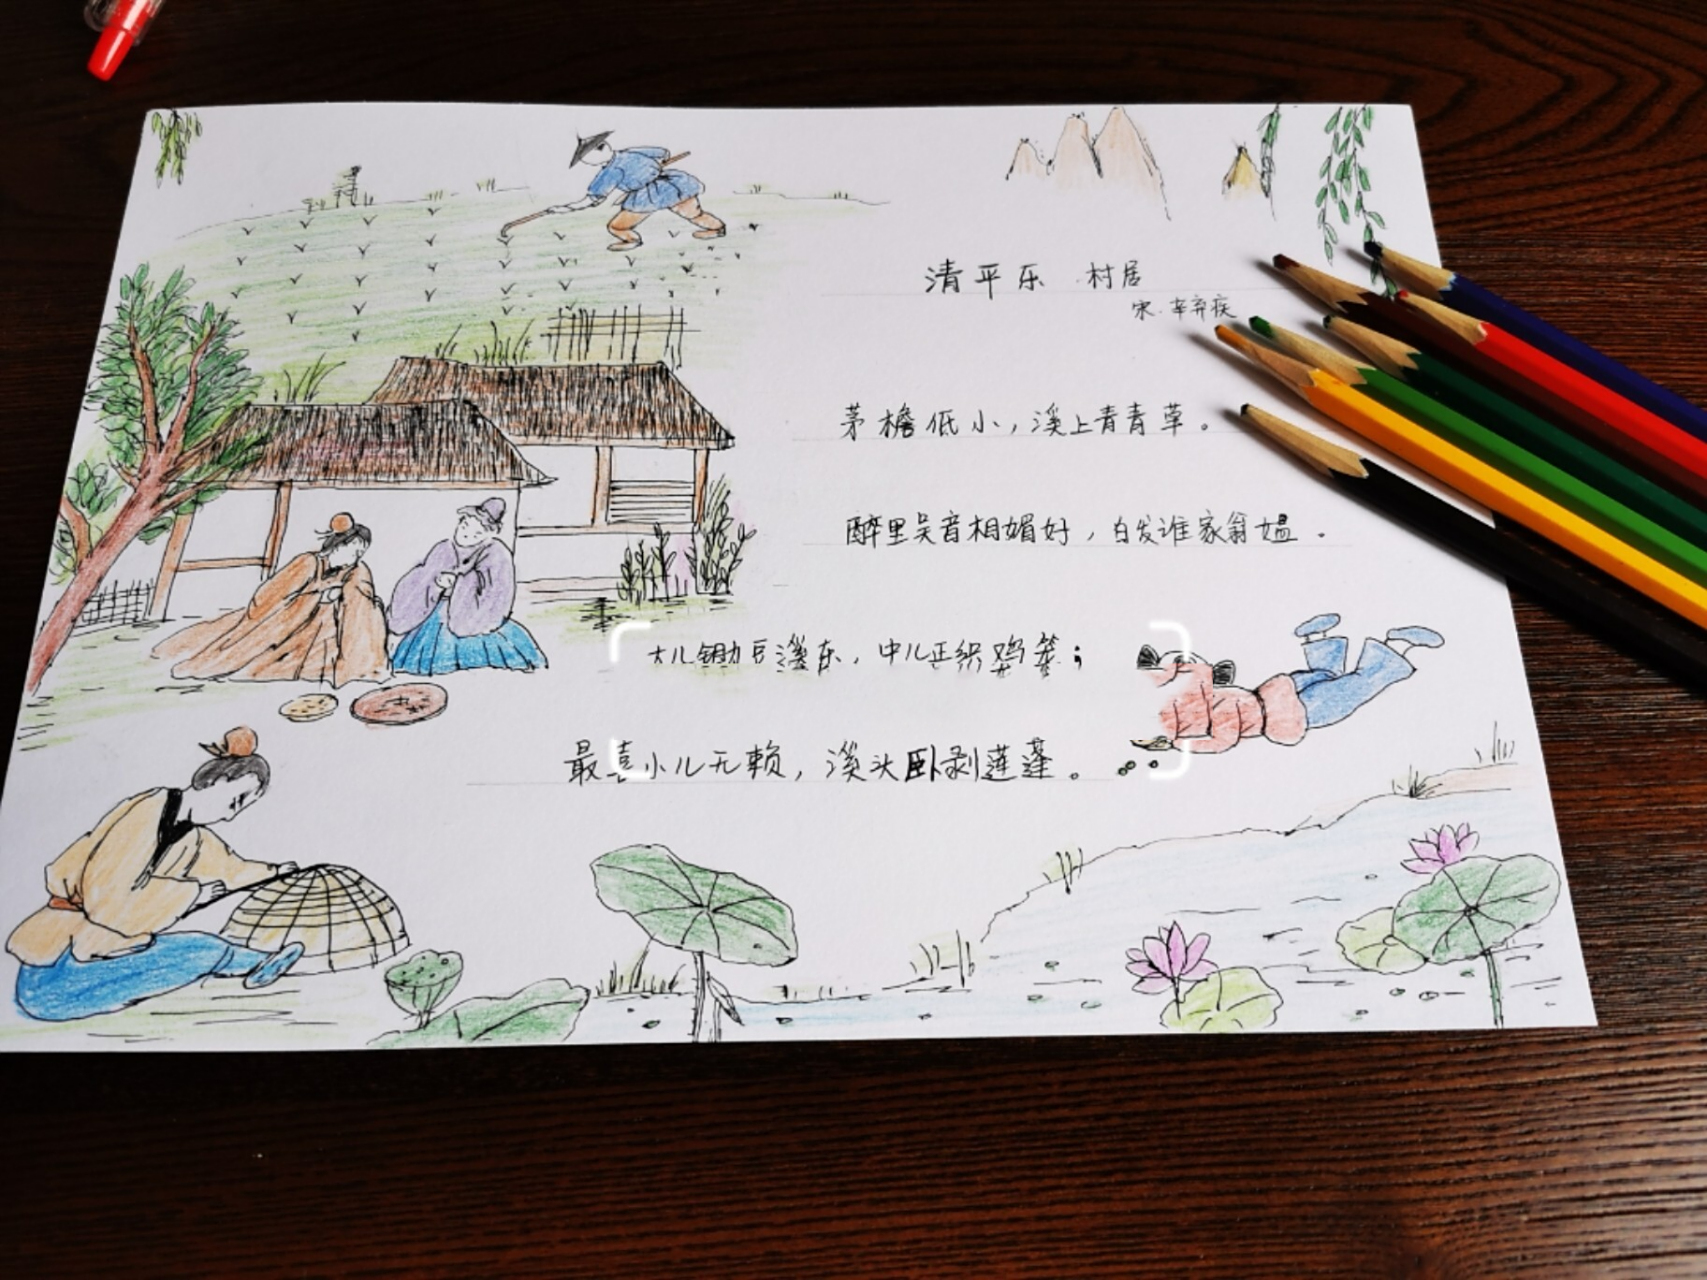 清平乐·村居
宋·辛弃疾
茅檐低小，溪上青青草。
醉里吴音相媚好，白发谁家翁媪。
大儿锄豆溪东，中儿正织鸡笼；
最喜小儿无赖，溪头卧剥莲蓬。